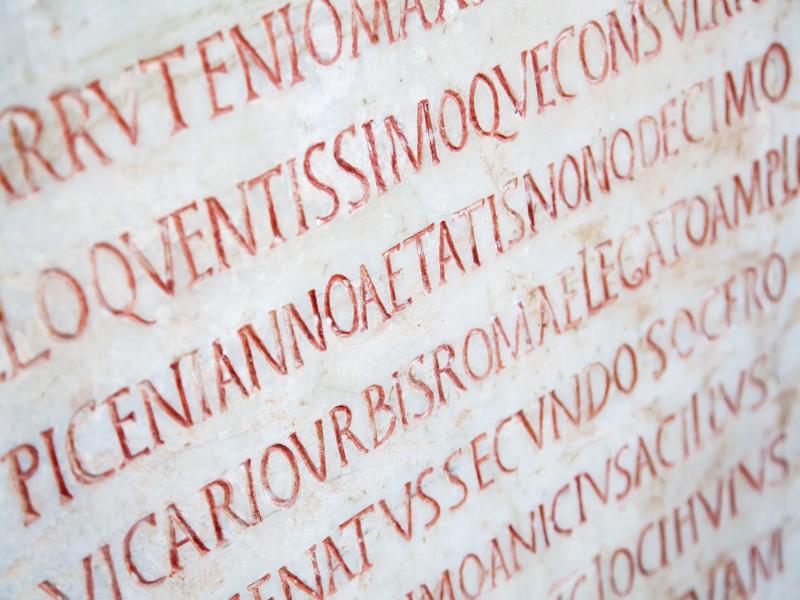 ARRVTENIOMAX
LOQVENTISSIMOQVECONSVLAR
PICENIANNOAETATISNONODECIMO
VICARIOVRBISROMAELEGATOAMPLI
SENATVSSECVNDOSOCERO
IMOANICIVSACILIVS
OCIHVIVS
VAM